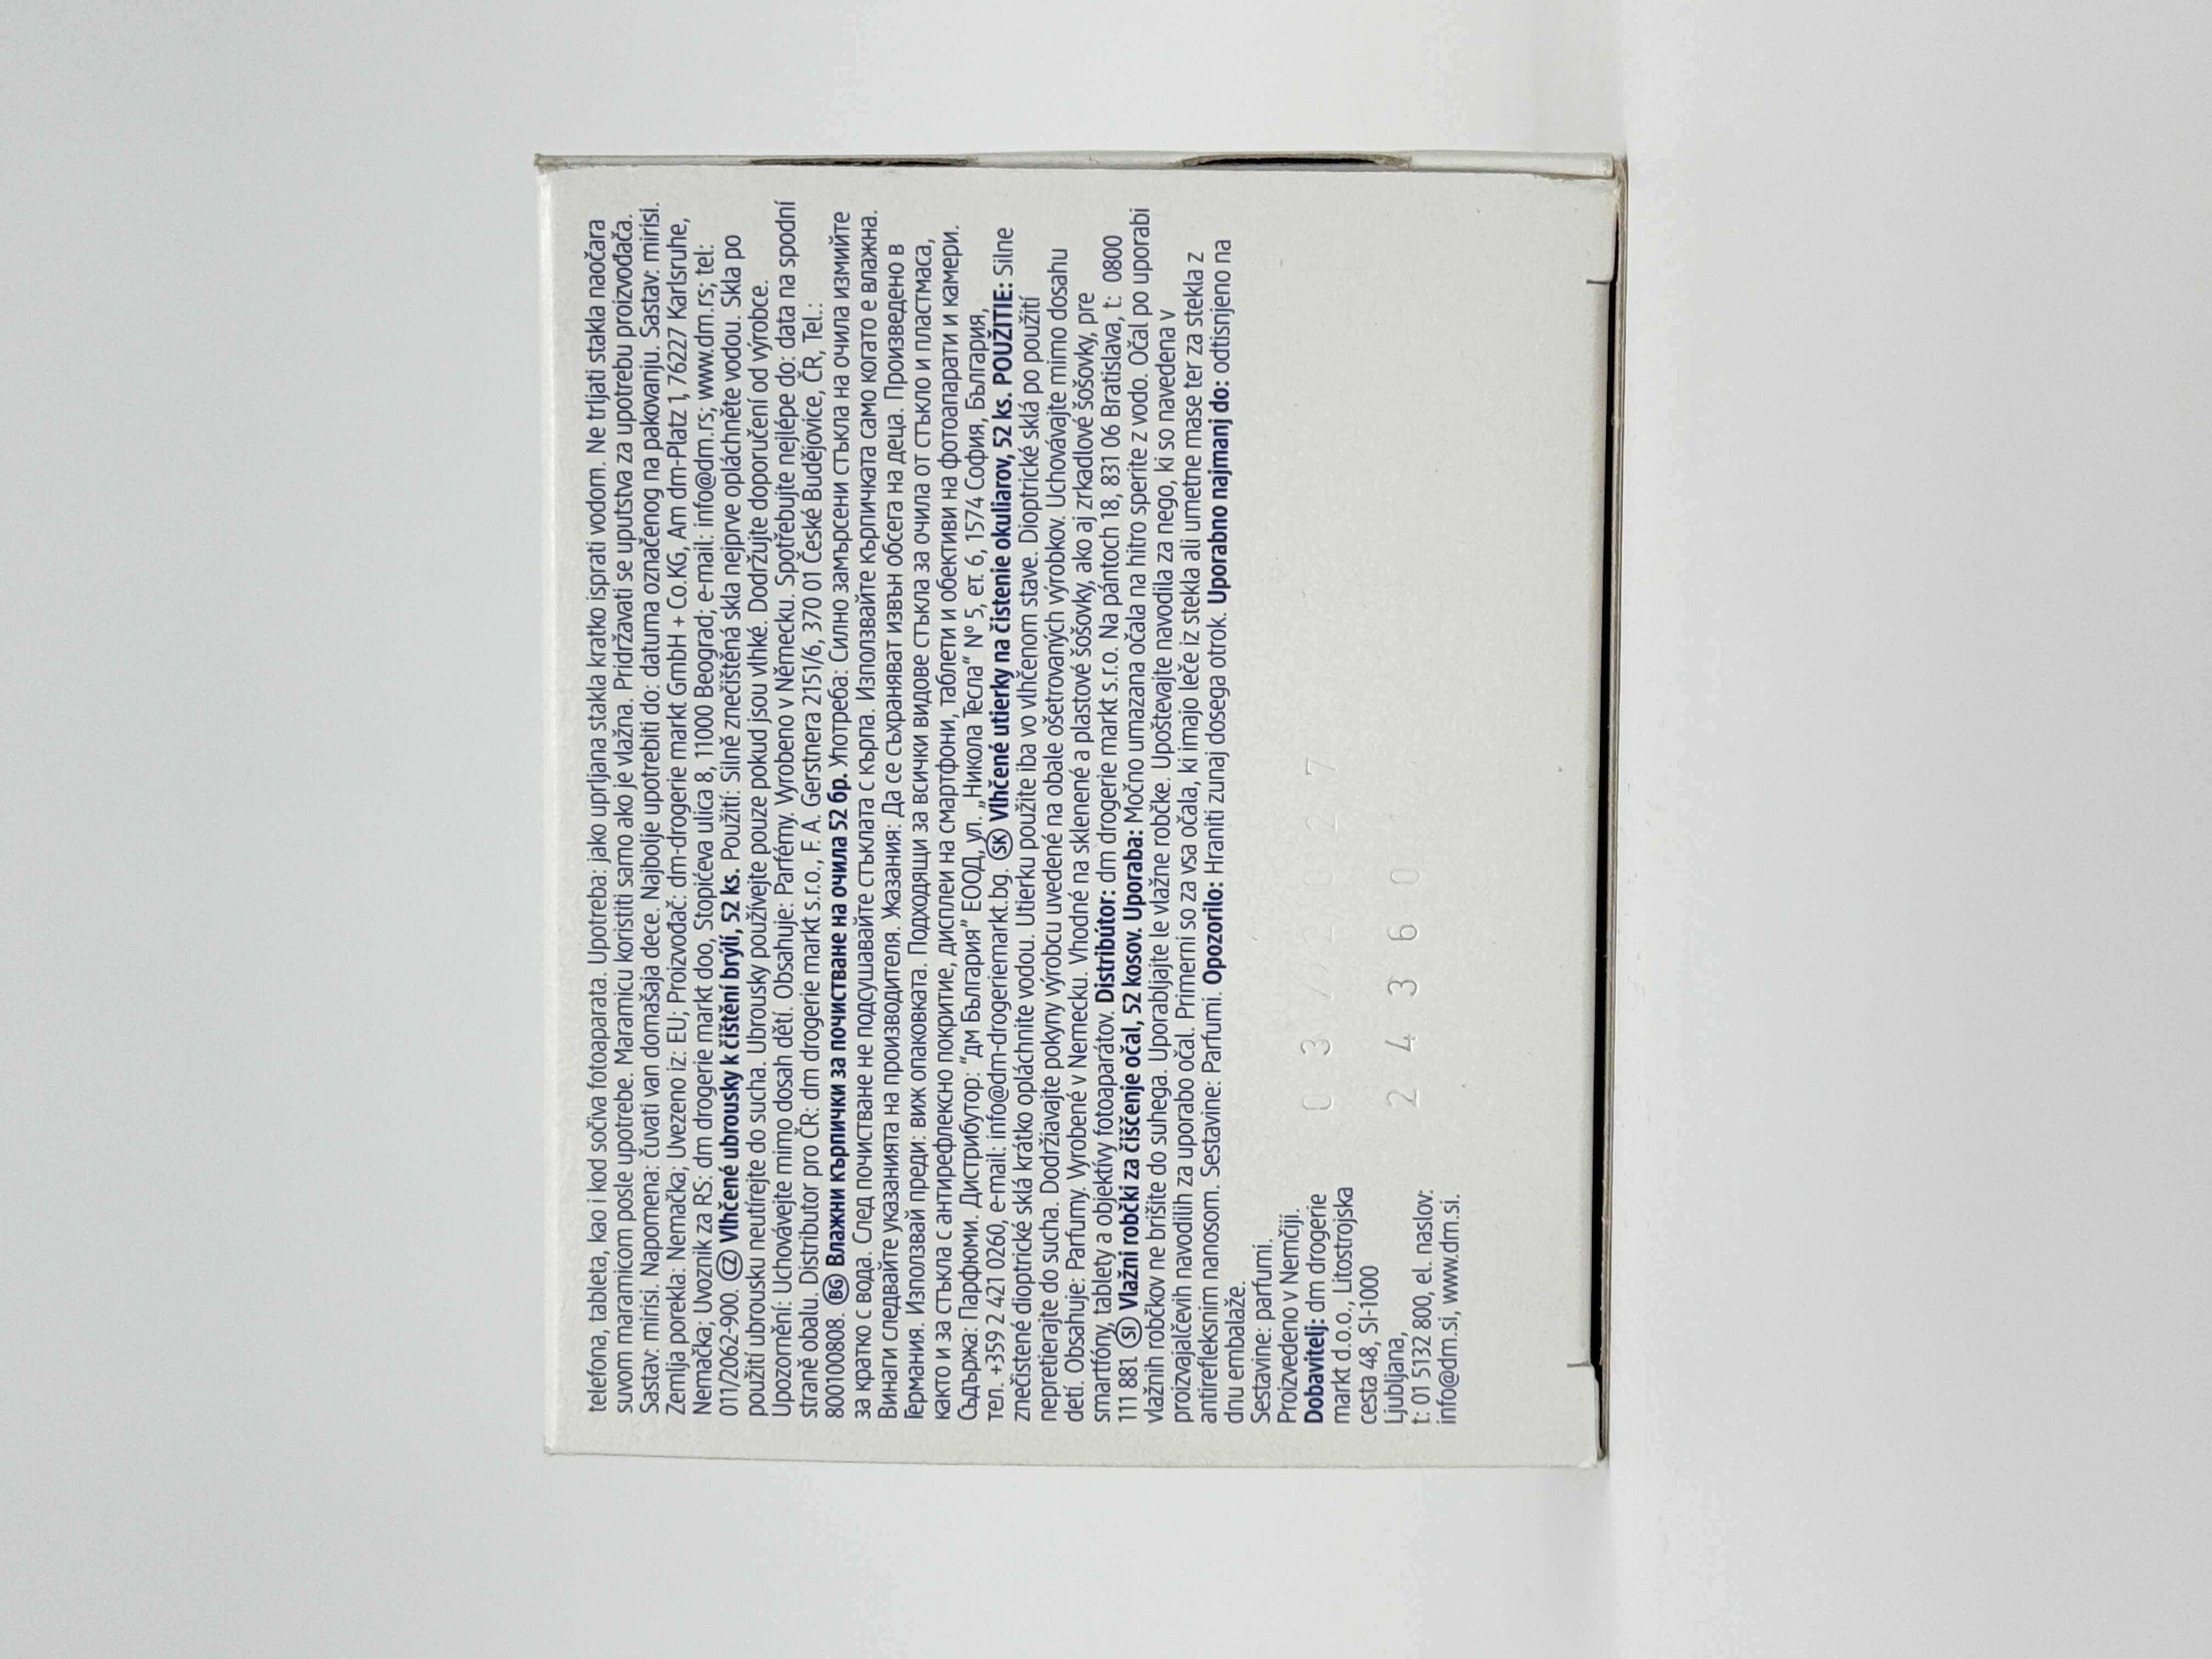 telefona, tableta, kao i kod sočiva fotoaparata. Upotreba: jako uprljana stakla kratko isprati vodom. Ne trljati stakla naočara
suvom maramicom posle upotrebe. Maramicu koristiti samo ako je vlažna. Pridržavati se uputstva za upotrebu proizvođača.
Sastav: mirisi. Napomena: čuvati van domašaja dece. Najbolje upotrebiti do: datuma označenog na pakovanju. Sastav: mirisi.
Zemlja porekla: Nemačka; Uvezeno iz: EU; Proizvođač: dm-drogerie markt GmbH + Co.KG, Am dm-Platz 1, 76227 Karlsruhe,
Nemačka; Uvoznik za RS: dm drogerie markt doo, Stopićeva ulica 8, 11000 Beograd; e-mail: info@dm.rs; www.dm.rs; tel:
011/2062-900. CZ Vlhčené ubrousky k čištění brýlí, 52 ks. Použití: Silně znečištěná skla nejprve opláchněte vodou. Skla po
použití ubrousku neutírejte do sucha. Ubrousky používejte pouze pokud jsou vlhké. Dodržujte doporučení od výrobce.
Upozornění: Uchovávejte mimo dosah dětí. Obsahuje: Parfémy. Vyrobeno v Německu. Spotřebujte nejlépe do: data na spodní
straně obalu. Distributor pro ČR: dm drogerie markt s.r.o., F. A. Gerstnera 2151/6, 370 01 České Budějovice, ČR, Tel.:
800100808. BG Влажни кърпички за почистване на очила 52 бр. Употреба: Силно замърсени стъкла на очила измийте
за кратко с вода. След почистване не подсушавайте стъклата с кърпа. Използвайте кърпичката само когато е влажна.
Винаги следвайте указанията на производителя. Указания: Да се съхраняват извън обсега на деца. Произведено в
Германия. Използвай преди: виж опаковката. Подходящи за всички видове стъкла за очила от стъкло и пластмаса,
както и за стъкла с антирефлексно покритие, дисплеи на смартфони, таблети и обективи на фотоапарати и камери.
Съдържа: Парфюми. Дистрибутор: “дм България” ЕООД, ул. „Никола Тесла“ № 5, ет. 6, 1574 София, България,
тел. +359 2 421 0260, e-mail: info@dm-drogeriemarkt.bg. SK Vlhčené utierky na čistenie okuliarov, 52 ks. POUŽITIE: Silne
znečistené dioptrické sklá krátko opláchnite vodou. Utierku použite iba vo vlhčenom stave. Dioptrické sklá po použití
nepretierajte do sucha. Dodržiavajte pokyny výrobcu uvedené na obale ošetrovaných výrobkov. Uchovávajte mimo dosahu
detí. Obsahuje: Parfumy. Vyrobené v Nemecku. Vhodné na sklenené a plastové šošovky, ako aj zrkadlové šošovky, pre
smartfóny, tablety a objektívy fotoaparátov. Distribútor: dm drogerie markt s.r.o. Na pántoch 18, 831 06 Bratislava, t: 0800
111 881 SI Vlažni robčki za čiščenje očal, 52 kosov. Uporaba: Močno umazana očala na hitro sperite z vodo. Očal po uporabi
vlažnih robčkov ne brišite do suhega. Uporabljajte le vlažne robčke. Upoštevajte navodila za nego, ki so navedena v
proizvajalčevih navodilih za uporabo očal. Primerni so za vsa očala, ki imajo leče iz stekla ali umetne mase ter za stekla z
antirefleksnim nanosom. Sestavine: Parfumi. Opozorilo: Hraniti zunaj dosega otrok. Uporabno najmanj do: odtisnjeno na
dnu embalaže.
Sestavine: parfumi.
Proizvedeno v Nemčiji.
Dobavitelj: dm drogerie
markt d.o.o., Litostrojska
cesta 48, SI-1000
Ljubljana,
t: 01 5132 800, el. naslov:
info@dm.si, www.dm.si.
03/2027
24360